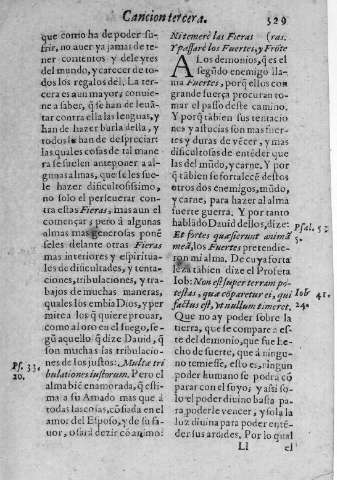 Cancion tercera.
329
que como ha de poder su-
frir, no auer ya jamas de te-
ner contentos y deleytes
del mundo, y carecer de to-
dos los regalos del. La ter-
cera es aun mayor, conuie-
ne a saber, q̃ se han de leuã-
tar contra ella las lenguas, y
han de hazer burla della, y
todos la han de despreciar:
las quales cosas de tal mane
ra se suelen anteponer a al-
gunas almas, que se les sue-
le hazer dificultosissimo,
no solo el perseuerar con
tra estas Fieras, mas aun el
començar; pero à algunas
almas mas generosas ponẽ
seles delante otras Fieras
mas interiores y espiritua-
les de dificultades, y tenta-
ciones, tribulaciones, y tra-
bajos de muchas maneras,
quales los embia Dios, y per
mite a los q̃ quiere prouar,
como al oro en el fuego, se-
gũ aquello q̃ dize Dauid, q̃
son muchas las tribulacio-
nes de los justos: Multæ tri
bulationes iustorum. Pero el
alma biẽ enamorada, q̃ esti-
ma a su Amado mas que a
todas las cosas, cõfiada en el
amor del Esposo, y de su fa
uor, osará dezir cõ animo:
Ps. 33.
20.
Ni temerè las Fieras (ras.
Y passarè los Fuertes, y Frõte
A Los demonios, q̃ es el
segũdo enemigo lla-
ma Fuertes, porq̃ ellos con
grande fuerça procuran to-
mar el passo deste camino.
Y porq̃ tãbien sus tentacio
nes y astucias son mas fuer-
tes y duras de vẽcer, y mas
dificultosas de entẽder que
las del mũdo, y carne. Y por
q̃ tãbien se fortalecẽ destos
otros dos enemigos, mũdo,
y carne, para hazer al alma
fuerte guerra. Y por tanto
hablãdo Dauid dellos, dize:
Et fortes quæsierunt animã
meã, los Fuertes pretendie-
ron mi alma. De cuya forta
leza tãbien dize el Profeta
Iob: Non est super terram po-
testas, quæ cõparetur ei, qui
factus est, vt nullum timeret.
Que no ay poder sobre la
tierra, que se compare a es-
te del demonio, que fue he-
cho de suerte, que à ningu-
no temiesse, esto es, ningun
poder humano se podrà cõ
parar con el suyo; y assi so-
lo el poder diuino basta pa-
ra poderle vencer, y sola la
luz diuina para poder entẽ-
der sus ardides. Por lo qual
Psal. 53.
5.
Iob 41.
24.
Ll
el